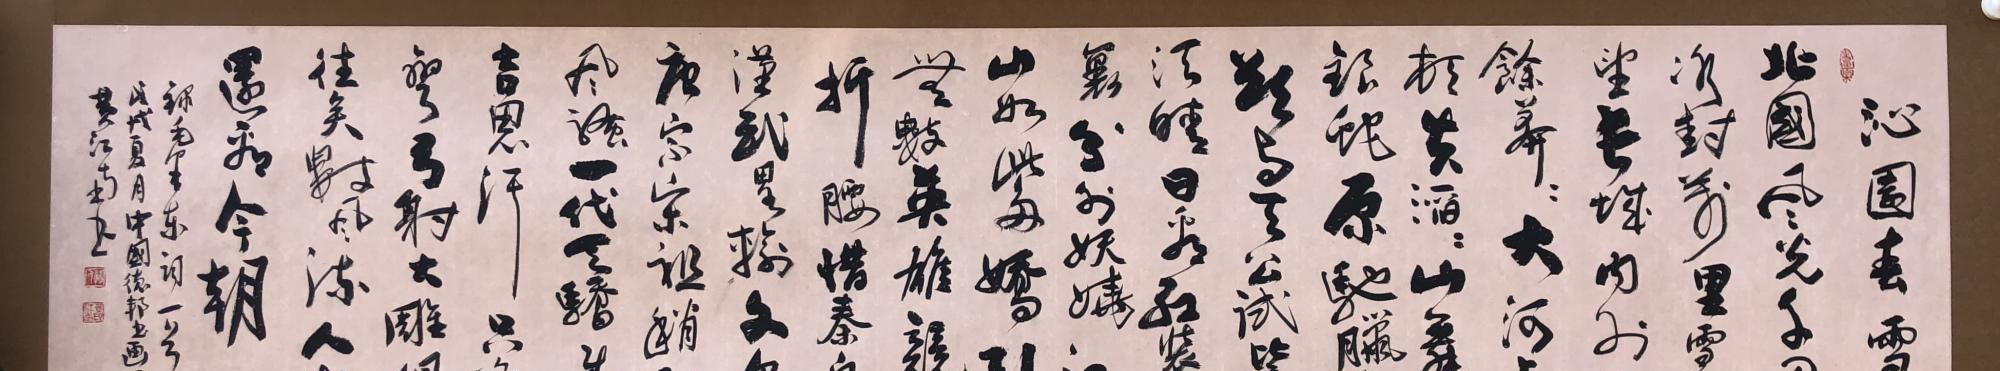 沁園春雪
北國风光千
冰封萬里雪
望長城内外
餘莽〻大河
頓失滔〻山舞
銀蛇原馳臘
欲与天公試
須晴日看紅裝
裹分外妖嬈
山如此多嬌引
無數英雄競
折腰惜秦
漢武略輸文
唐宗宋祖稍
风騷一代天驕
吉思汗只
彎弓射大雕
往矣數风流人
還看今朝
錄毛澤東詞一首
戊戌夏月中國德邦书画
黄江南书